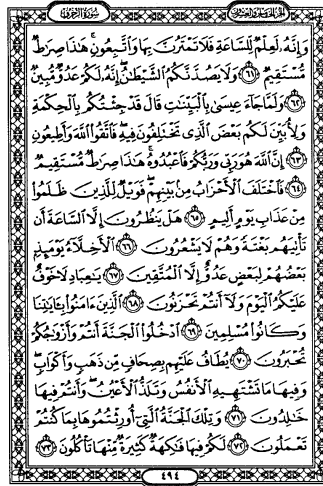 سورة الزخرف
الجزء الخامس والعشرون
وَإِنَّهُۥ لَعِلْمٌ لِّلسَّاعَةِ فَلَا تَمْتَرُنَّ بِهَا وَٱتَّبِعُونِ ۚ هَٰذَا صِرَٰطٌ
مُّسْتَقِيمٌ ﴿٦١﴾ وَلَا يَصُدَّنَّكُمُ ٱلشَّيْطَٰنُ ۖ إِنَّهُۥ لَكُمْ عَدُوٌّ مُّبِينٌ
﴿٦٢﴾ وَلَمَّا جَآءَ عِيسَىٰ بِٱلْبَيِّنَٰتِ قَالَ قَدْ جِئْتُكُم بِٱلْحِكْمَةِ
وَلِأُبَيِّنَ لَكُم بَعْضَ ٱلَّذِى تَخْتَلِفُونَ فِيهِ ۖ فَٱتَّقُوا۟ ٱللَّهَ وَأَطِيعُونِ
﴿٦٣﴾ إِنَّ ٱللَّهَ هُوَ رَبِّى وَرَبُّكُمْ فَٱعْبُدُوهُ ۚ هَٰذَا صِرَٰطٌ مُّسْتَقِيمٌ
﴿٦٤﴾ فَٱخْتَلَفَ ٱلْأَحْزَابُ مِنۢ بَيْنِهِمْ ۖ فَوَيْلٌ لِّلَّذِينَ ظَلَمُوا۟
مِنْ عَذَابِ يَوْمٍ أَلِيمٍ ﴿٦٥﴾ هَلْ يَنظُرُونَ إِلَّا ٱلسَّاعَةَ أَن
تَأْتِيَهُم بَغْتَةً وَهُمْ لَا يَشْعُرُونَ ﴿٦٦﴾ ٱلْأَخِلَّآءُ يَوْمَئِذٍۭ
بَعْضُهُمْ لِبَعْضٍ عَدُوٌّ إِلَّا ٱلْمُتَّقِينَ ﴿٦٧﴾ يَٰعِبَادِ لَا خَوْفٌ
عَلَيْكُمُ ٱلْيَوْمَ وَلَآ أَنتُمْ تَحْزَنُونَ ﴿٦٨﴾ ٱلَّذِينَ ءَامَنُوا۟ بِـَٔايَٰتِنَا
وَكَانُوا۟ مُسْلِمِينَ ﴿٦٩﴾ ٱدْخُلُوا۟ ٱلْجَنَّةَ أَنتُمْ وَأَزْوَٰجُكُمْ
تُحْبَرُونَ ﴿٧٠﴾ يُطَافُ عَلَيْهِم بِصِحَافٍ مِّن ذَهَبٍ وَأَكْوَابٍ ۖ
وَفِيهَا مَا تَشْتَهِيهِ ٱلْأَنفُسُ وَتَلَذُّ ٱلْأَعْيُنُ ۖ وَأَنتُمْ فِيهَا
خَٰلِدُونَ ﴿٧١﴾ وَتِلْكَ ٱلْجَنَّةُ ٱلَّتِىٓ أُورِثْتُمُوهَا بِمَا كُنتُمْ
تَعْمَلُونَ ﴿٧٢﴾ لَكُمْ فِيهَا فَٰكِهَةٌ كَثِيرَةٌ مِّنْهَا تَأْكُلُونَ ﴿٧٣﴾
٤٩٤